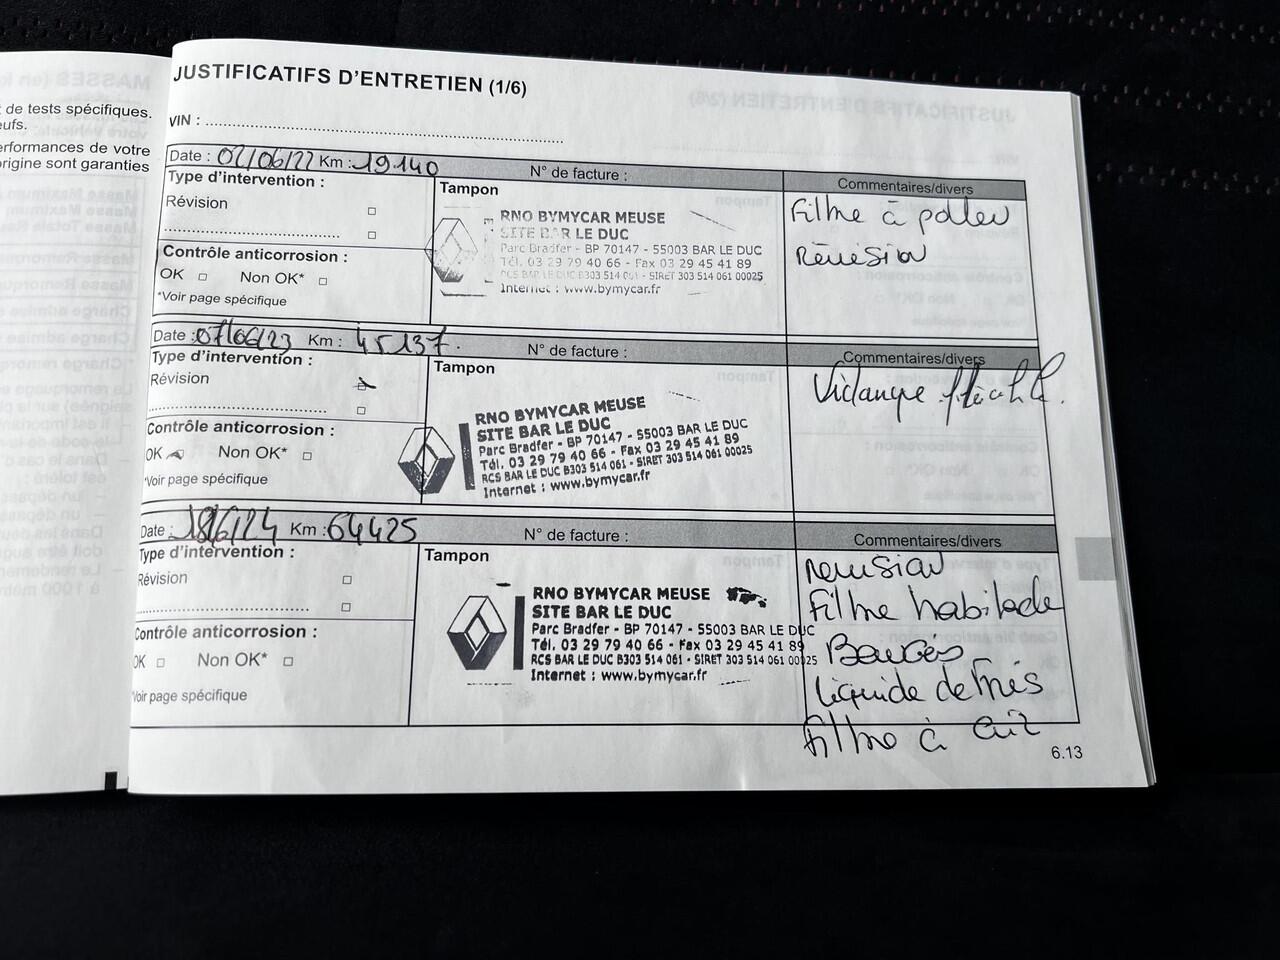 t de tests spécifiques.
eufs.
erformances de votre
origine sont garanties
JUSTIFICATIFS D'ENTRETIEN (1/6)
VIN :
Date : 02/06/22 Km : 19140 N° de facture :
Type d'intervention :
Révision
Contrôle anticorrosion :
OK Non OK*
*Voir page spécifique
Tampon
RNO BYMYCAR MEUSE
SITE BAR LE DUC
Parc Bradfer - BP 70147 - 55003 BAR LE DUC
Tél. 03 29 79 40 66 - Fax 03 29 45 41 89
RCS BAR LE DUC B303 514 061 - SIRET 303 514 061 00025
Internet : www.bymycar.fr
Commentaires/divers
Filtre à pollen
Révision
Date : 07/06/23 Km : 45137. N° de facture :
Type d'intervention :
Révision
Contrôle anticorrosion :
OK Non OK*
*Voir page spécifique
Tampon
RNO BYMYCAR MEUSE
SITE BAR LE DUC
Parc Bradfer - BP 70147 - 55003 BAR LE DUC
Tél. 03 29 79 40 66 - Fax 03 29 45 41 89
RCS BAR LE DUC B303 514 061 - SIRET 303 514 061 00025
Internet : www.bymycar.fr
Commentaires/divers
Vidange
Date : 18/6/24 Km : 64425 N° de facture :
Type d'intervention :
Révision
Contrôle anticorrosion :
OK Non OK*
*Voir page spécifique
Tampon
RNO BYMYCAR MEUSE
SITE BAR LE DUC
Parc Bradfer - BP 70147 - 55003 BAR LE DUC
Tél. 03 29 79 40 66 - Fax 03 29 45 41 89
RCS BAR LE DUC B303 514 061 - SIRET 303 514 061 00025
Internet : www.bymycar.fr
Commentaires/divers
revision
Filtre habitacle
Bougies
Liquide de freins
Filtre à air
6.13